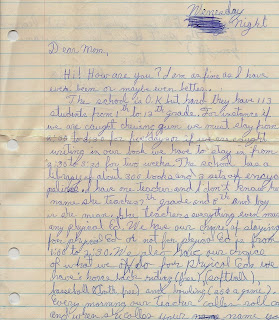 Monday
Night
Dear Mom,
Hi! How are you? I am as fine as I have
ever been or maybe even better.
The school is O.K. but hard they have 113
students from 1th to 12th grade. For instance if
we are caught chewing gum we must stay from
for five days if we are caught
writing in our book we have to stay in from
2:30 to 3:30 for two weeks. The school has a
library of about 300 books and a set of encyclo
I have one teacher and I don't know her
name she teaches 7th grade and 8th and boy
is she mean. She teaches everything even
phys ed. We have our choice of staying
for phys ed or not for physical ed is from
1:00 to 2:30. We also have our choice
of what we do for physical ed we
have horse back riding (free) (softball)
baseball (both free) and bowling (25¢ a game).
Every morning our teacher calls roll call
and when she calls your name you